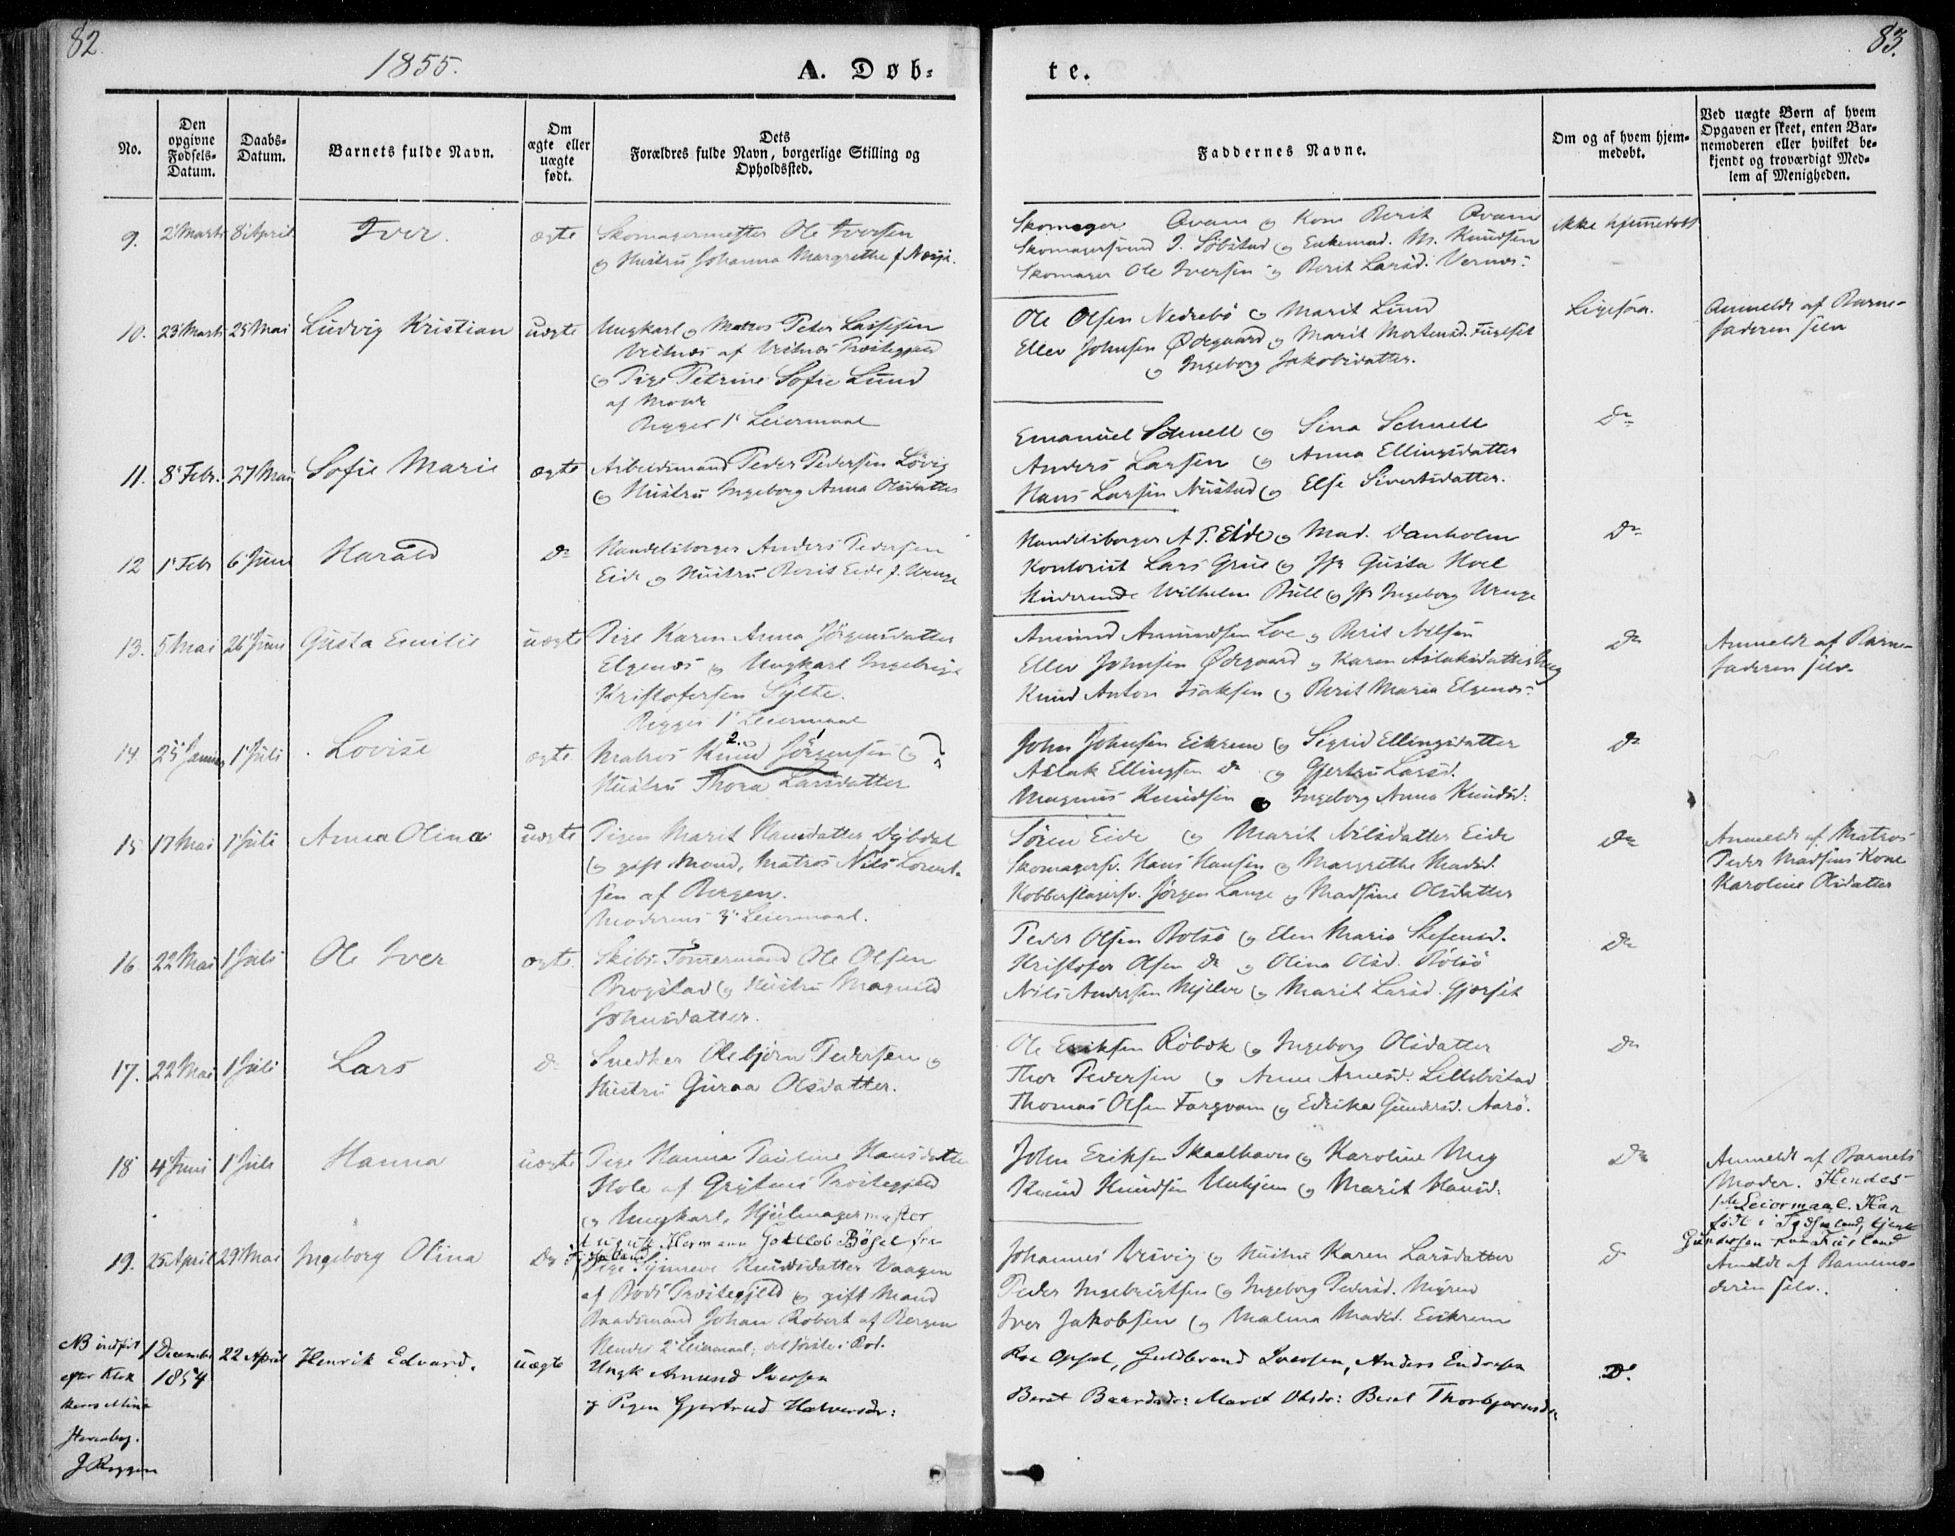 82.
1855.
A. Døb-
te.
83.
No.
Den opgivne Fødsels-Datum.
Daabs-Datum.
Barnets fulde Navn.
Om ægte eller uægte født.
Dets Forældres fulde Navn, borgerlige Stilling og Opholdssted.
Faddernes Navne.
Om og af hvem hjem-medøbt.
Ved uægte Børn af hvem Opgaven er skeet, enten Bar-nemoderen eller hvilket be-kjendt og troværdigt Med-lem af Menigheden.
9. 2 Marts 8 April Iver. ægte
Skomagermester Ole Iversen
og Hustru Johanna Margrethe f.
Skomager Qvam og Kone Berit Qvam
Skomagersvend I. Søbstad og Enkemad. M. Knudsen
Skomager Ole Iversen og Berit Larsd. Vernes.
ikke hjemmedøbt
10. 23 Marts 25 Mai Ludvig Kristian uægte
Ungkarl og Matros Peter Lassesen
Vestnæs af Vestnæs Præstegjæld
og Pige Petrine Sofie Lund
af Molde
Begges 1' Leiermaal
Ole Olsen Nedrebø og Marit Lund
Ellev Johnsen Ødegaard og Marit Mortensd. Fuglset
og Ingeborg Jakobsdatter.
Ligesaa.
Anmeldt af Barne-
faderen selv
11. 8 Febr. 27 Mai Sofie Marie ægte
Arbeidsmand Peder Pedersen Løvig
og Hustru Ingeborg Anna Olsdatter
Emanuel Schnell og Sina Schnell
Anders Larsen og Anna Ellingsdatter
Hans Larsen Nustad og Else Sivertsdatter.
Do
12 1' Febr 6 Juni Harald Do
Handelsborger Anders Pedersen
Eide og Hustru Berit Eide f. Unge
Handelsborger A P. Eide og Mad. Danholm
Kontorist Lars Grue og Jfr Gusta Hoel
Studerende Wilhelm Bull og Jfr Ingeborg Unge
Do
13. 5 Mai 26 Juni Gusta Emilie uægte
Pige Karen Anna Jørgensdatter
Elgenæs og Ungkarl Ingebrigt
Kristofersen Sylte.
Begges 1' Leiermaal
Amund Amundsen Loe og Berit Nilsen
Ellev Johnsen Ødegaard og Karen Aslaksdatter
Knud Anton Isaksen og Berit Maria Elgenæs.
Do
Anmeldt af Barne-
faderen selv.
14. 25 Januar 1' Juli Lovise ægte
Matros Knud Jørgensen og
Hustru Thora Larsdatter
John Johnsen Eikrem og Sigrid Ellingsdatter
Aslak Ellingsen Do og Gjertru Larsd.
Magnus Knudsen og Ingeborg Anna Knudsd.
Do
15 17 Mai 1' Juli Anna Olina uægte
Pigen Marit Hansdatter Dybdal
og gift Mand, Matros Nils Lorent-
sen af Bergen.
Moderens 3' Leiermaal.
Søren Eide og Marit Nilsdatter Eide
Skomagersv. Hans Hansen og Margrethe Madsd.
Kobberslagersv. Jørgen Lange og Madsine Olsdatter
Do
Anmeldt af Matros
Peder Madsens Kone
Karoline Olsdatter
16. 22 Mai 1' Juli Ole Iver ægte
Skibs-Tømmermand Ole Olsen
Brogstad og Hustru Magnild
Johnsdatter.
Peder Olsen Bolsø og Elen Maria Stefensd.
Kristofer Olsen Do og Olina Olsd. Bolsø
Nils Andersen Mjelve og Marit Larsd. Gjørset
Do
17. 22 Mai 1 Juli Lars Do
Snedker Olebjørn Pedersen og
Hustru Guraa Olsdatter.
Ole Eriksen Røbæk og Ingeborg Olsdatter
Thor Pedersen og Anne Arnesd. Lillebostad
Thomas Olsen Fargvam og Edrika Gundersd. Aarø.
Do
18 4 Juni 1' Juli Hanna uægte
Pige Hanna Pauline Hansdatter
Hole af Grytens Præstegjæld
og Ungkarl, Hjulmagermester
August Hermann Gottlob Bögel fra
Tydskland.
John Eriksen Skaalhavn og Karoline Mog
Knud Knudsen Unhjem og Marit Hansd.
Do
Anmeldt af Barnets
Moder. Hendes
1ste Leiermaal. Han
født i Tydskland,
19. 25 April 29 Mai Ingeborg Olina Do
Pige Synneve Knudsdatter Vaagen
af Bods Præstegjeld og gift Mand
Baadsmand Johan Robert af Bergen
Hendes 2' Leiermaal, det første i Bod.
Johannes Visvig og Hustru Karen Larsdatter
Peder Ingebrigtsen og Ingeborg Pedersd. Myrene
Iver Jakobsen og Malena Madsd. Eikrem
D
Anmeldt af Barnemo-
deren selv.
NB indført
efter Klok-
kerens
J Ryggen
1 December 1854 22 April Henrik Edvard. uægte
Ungk Amund Iversen
og Pigen Gjertrud Halvorsdr:
Roe Opsal, Guldbrand Iversen, Anders Endresen
Berit Baardsdr: Marit Olsdr: Berit Thorbjørnsdr.
D.